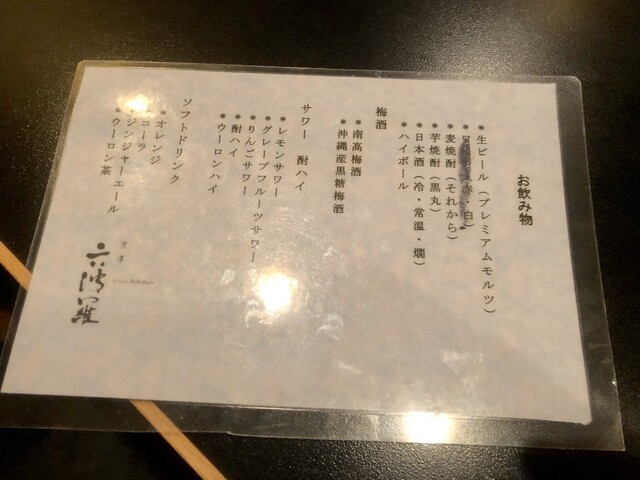 お飲み物
●生ビール（プレミアムモルツ）
赤・白）
●麦焼酎（それから）
●芋焼酎（黒丸）
●日本酒（冷・常温・燗）
●ハイボール
梅酒
●南高梅酒
●沖縄産黒糖梅酒
サワー　酎ハイ
●レモンサワー
●グレープフルーツサワー
●りんごサワー
●酎ハイ
●ウーロンハイ
ソフトドリンク
●オレンジ
●コーラ
●ジンジャーエール
●ウーロン茶
六波羅